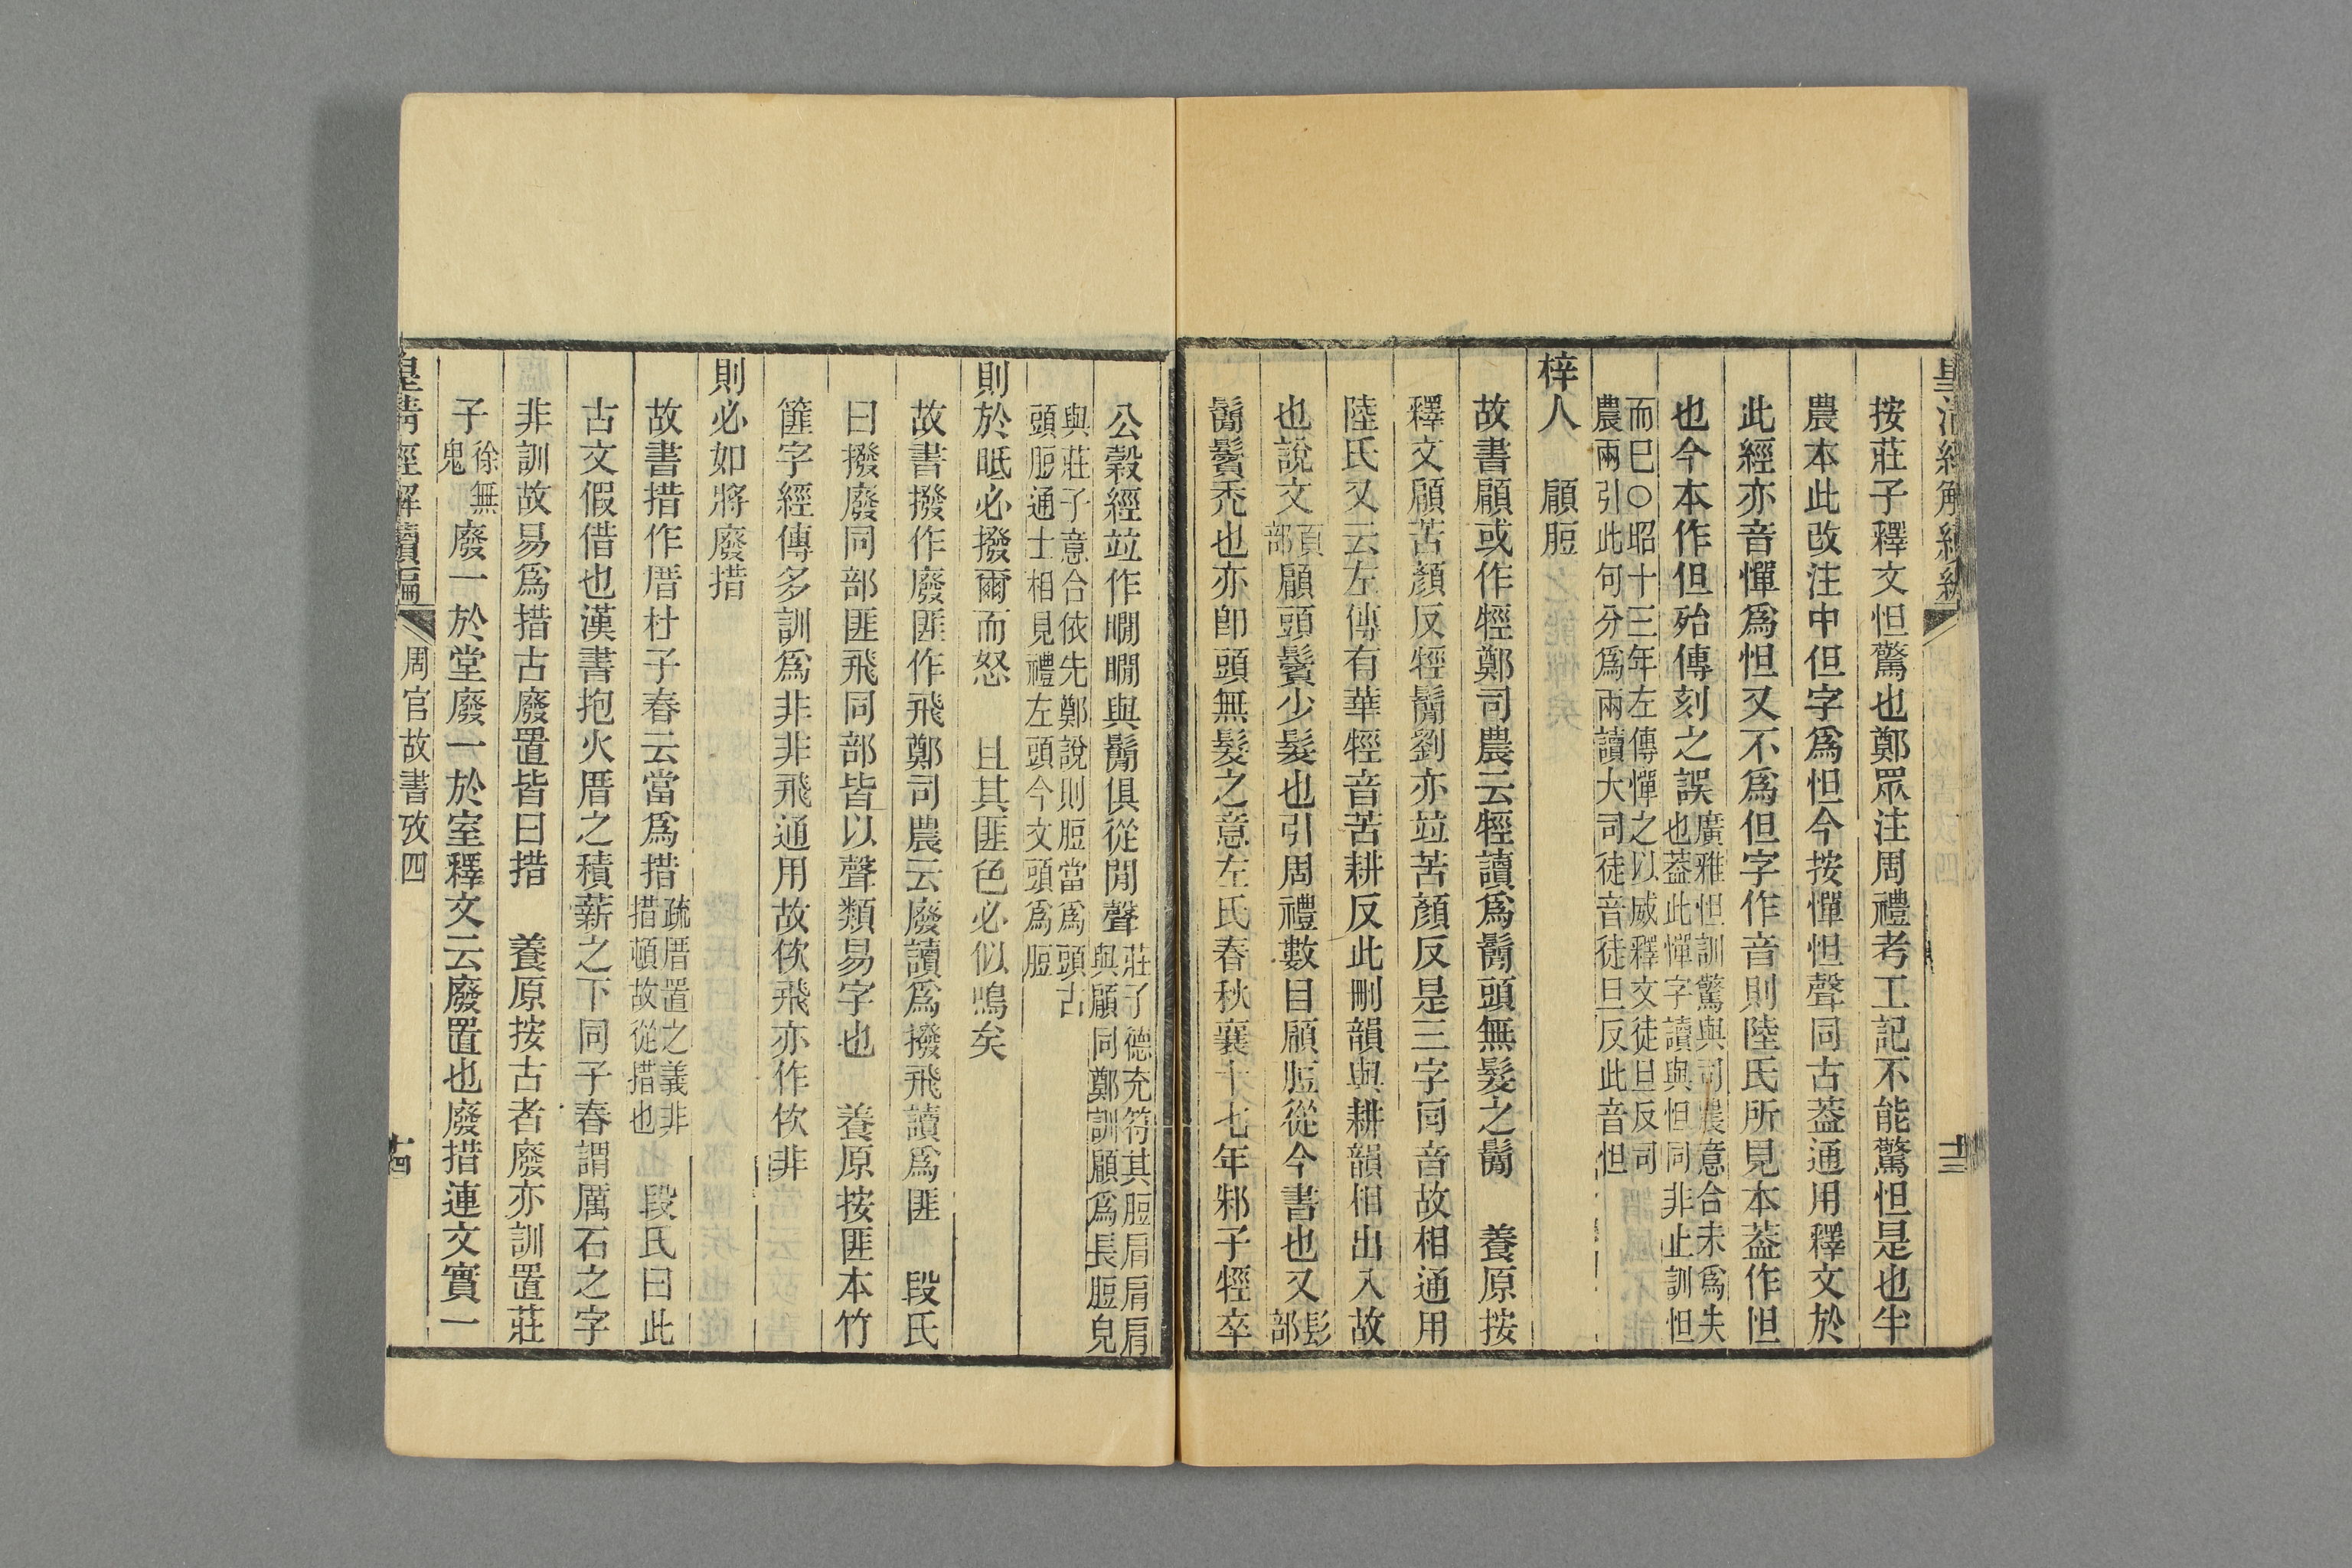 皇清經解續編
十三
按莊子釋文怛驚也鄭眾注周禮考工記不能驚怛是也牛
農本此改注中但字爲怛今按憚怛聲同古葢通用釋文於
此經亦音憚爲怛又不爲但字作音則陸氏所見本葢作怛
也今本作但殆傳刻之誤廣雅怛訓驚與司農意合未爲失
也葢此憚字讀與怛同非止訓怛
而巳○昭十三年左傳憚之以威釋文徒旦反司
農兩引此何分爲兩讀大司徒音徒旦反此音怛
梓人　顧脰
故書顧或作牼鄭司農云牼讀爲鬜頭無髮之鬜　養原按
釋文顧苦顏反牼鬜劉亦竝苦顏反是三字同音故相通用
陸氏又云左傳有華牼音苦耕反此刪韻與耕韻相出入故
也說文頁部顧頭鬢少髮也引周禮數目顧脰從今書也又髟部
鬜鬢禿也亦卽頭無髮之意左氏春秋襄十七年邾子牼卒
公穀經竝作瞯瞯與鬜俱從閒聲莊子德充符其脰肩肩肩
與顧同鄭訓顧爲長脰皃
與莊子意合依先鄭說則脰當爲頭古
頭脰通士相見禮左頭今文頭爲脰
則於眡必撥爾而怒　且其匪色必似鳴矣
故書撥作廢匪作飛鄭司農云廢讀爲撥飛讀爲匪　段氏
曰撥廢同部匪飛同部皆以聲類易字也　養原按匪本竹
篚字經傳多訓爲非非飛通用故佽飛亦作佽非
則必如將廢措
故書措作厝杜子春云當爲措疏厝置之義非
措頓故從措也　段氏曰此
古文假借也漢書抱火厝之積薪之下同子春謂厲石之字
非訓故易爲措古廢置皆曰措　養原按古者廢亦訓置莊
子徐無鬼廢一於堂廢一於室釋文云廢置也廢措連文實一
皇清經解續編
周官故書攷四
十四